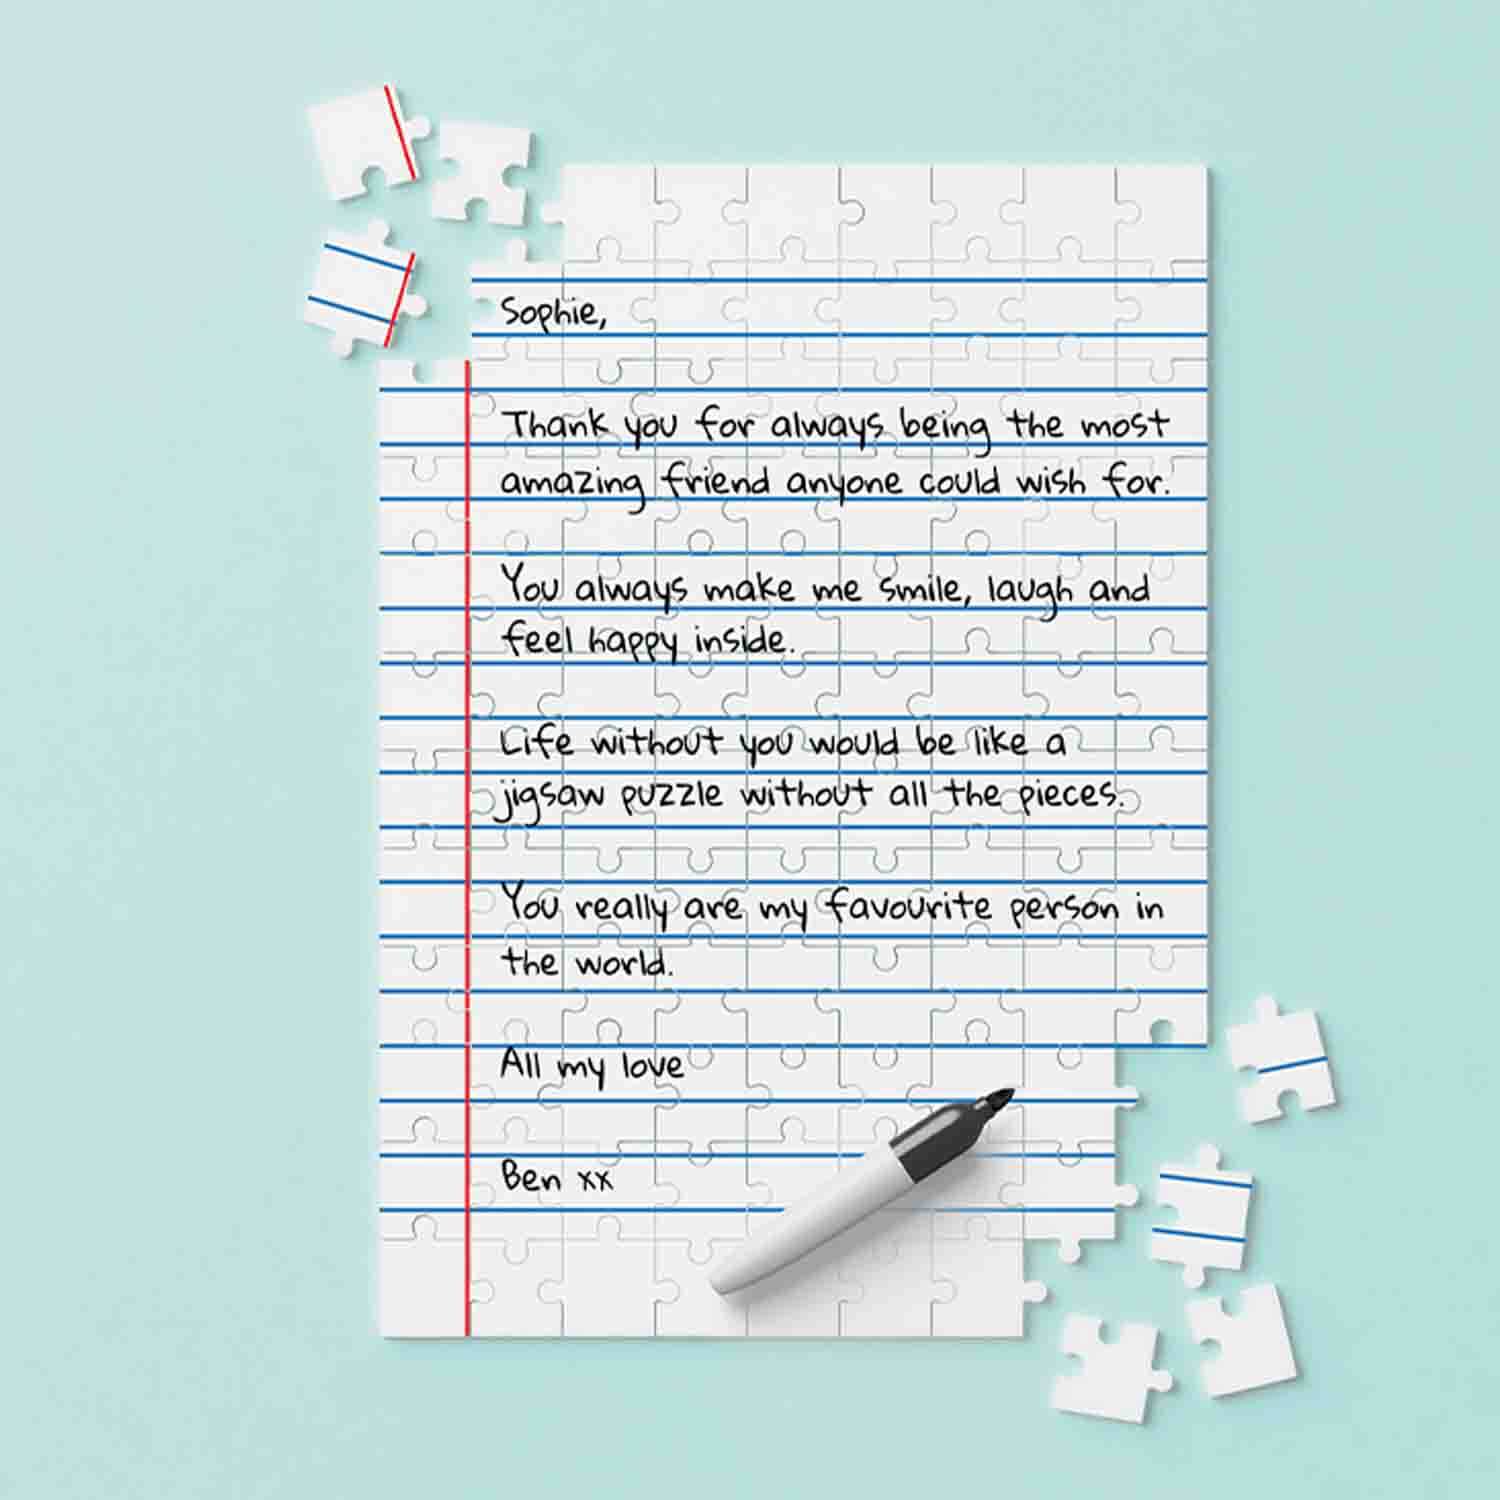 Sophie,
Thank you for always being the most
amazing friend anyone could wish for.
You always make me smile, laugh and
feel happy inside.
Life without you would be like a
jigsaw puzzle without all the pieces.
You really are my favourite person in
the world.
All my love
Ben xx